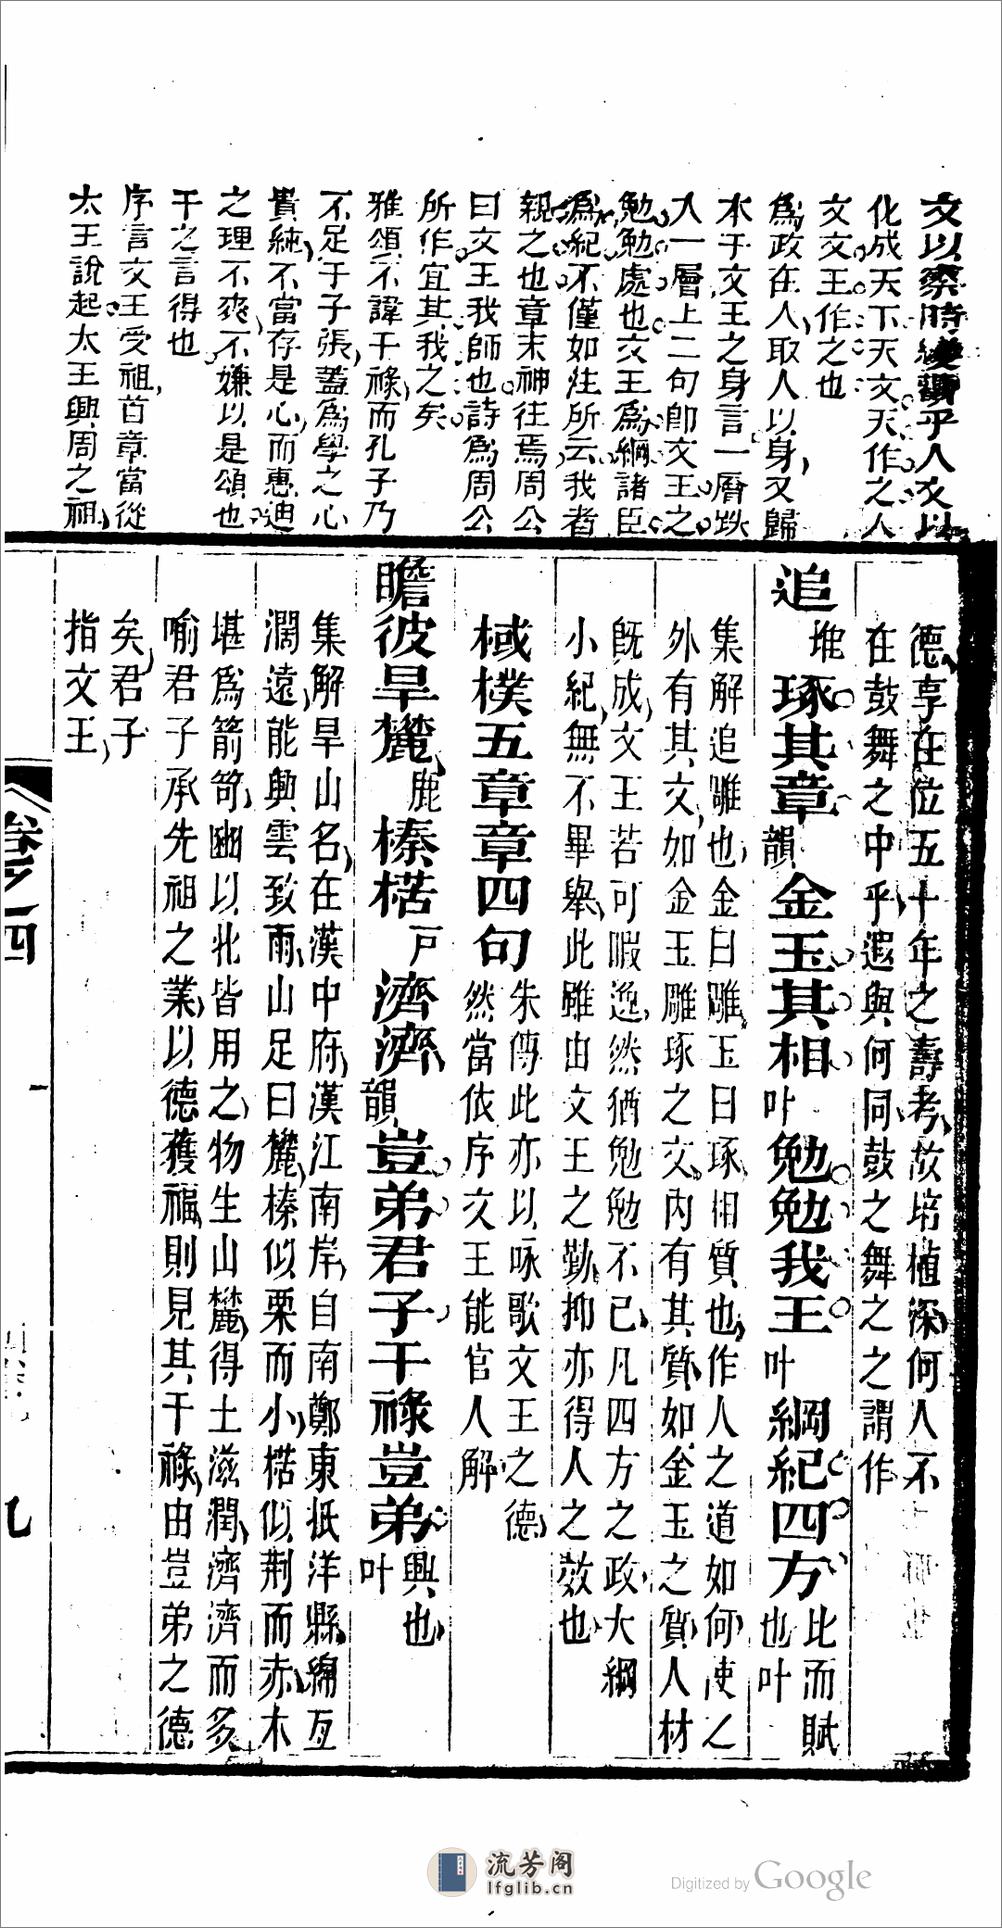 文以察時變觀乎人文以
化成天下天文天作之人
文文王作之也
爲政在人取人以身又歸
本于文王之身言一層遞
人一層上二句卽文王之
勉勉處也文王爲綱諸臣
爲紀不僅如注所云我者
親之也章末神往焉周公
曰文王我師也詩爲周公
所作宜其我之矣
雅頌不諱干祿而孔子乃
不足于子張蓋爲學之心
貴純不當存是心而惠迪
之理不爽不嫌以是頌也
干之言得也
序言文王受祖首章當從
太王說起太王興周之祖
德享在位五十年之壽考故培植深何人不
在鼓舞之中乎遐與何同鼓之舞之之謂作
追堆琢其章韻金玉其相叶勉勉我王叶綱紀四方比而賦也叶
集解追雕也金曰雕玉曰琢相質也作人之道如何使之
外有其文如金玉雕琢之文內有其質如金玉之質人材
旣成文王若可暇逸然猶勉勉不已凡四方之政大綱
小紀無不畢舉此雖由文王之勤抑亦得人之效也
棫樸五章章四句朱傳此亦以咏歌文王之德然當依序文王能官人解
瞻彼旱麓鹿榛楛戶濟濟韻豈弟君子干祿豈弟興也叶
集解旱山名在漢中府漢江南岸自南鄭東抵洋縣綿亙
濶遠能興雲致雨山足曰麓榛似栗而小楛似荆而赤木
堪爲箭笴幽以北皆用之物生山麓得土滋潤濟濟而多
喻君子承先祖之業以德獲福則見其干祿由豈弟之德
矣君子
指文王
卷之四
九
流芳阁
lfglib.cn
Digitized by Google